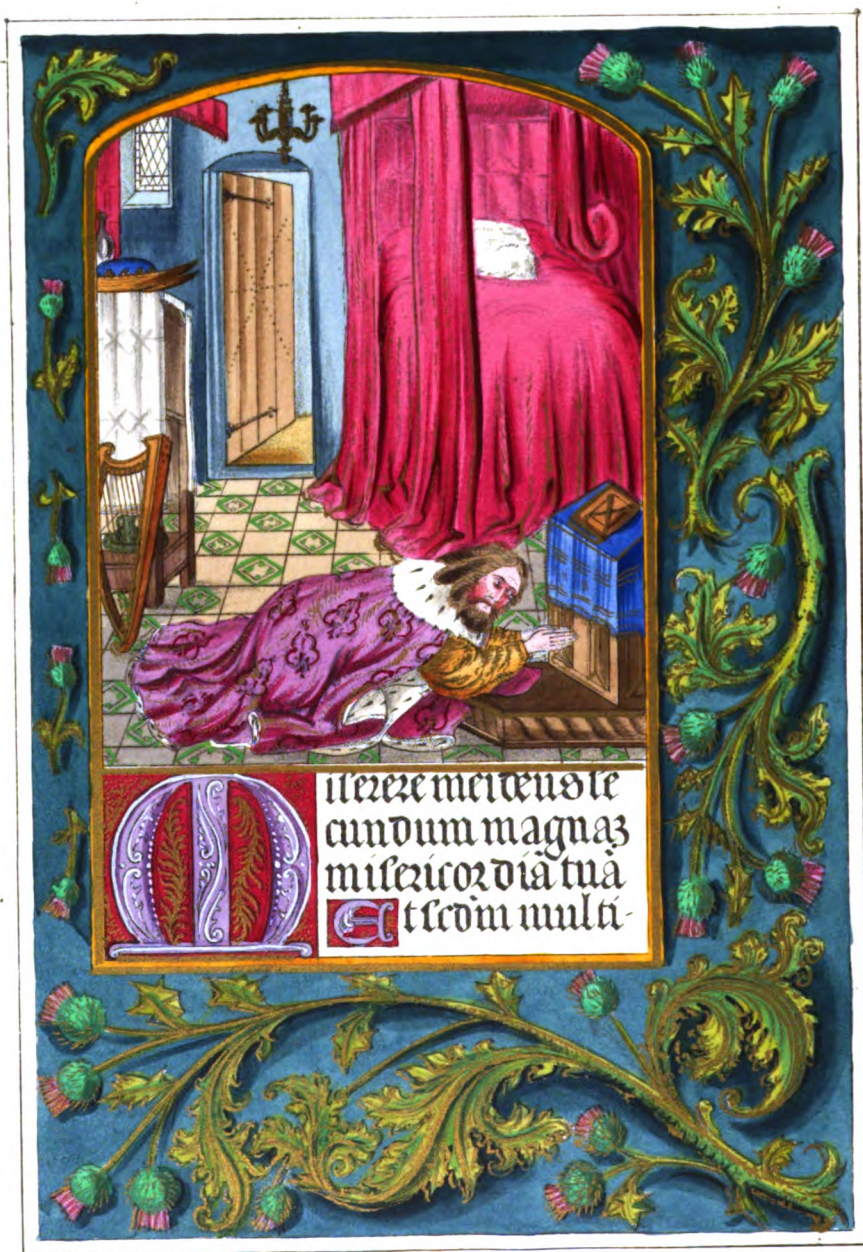 Miserere mei deus se
cundum magnaʒ
misericordiā tuā
Et scdm̄ multi-